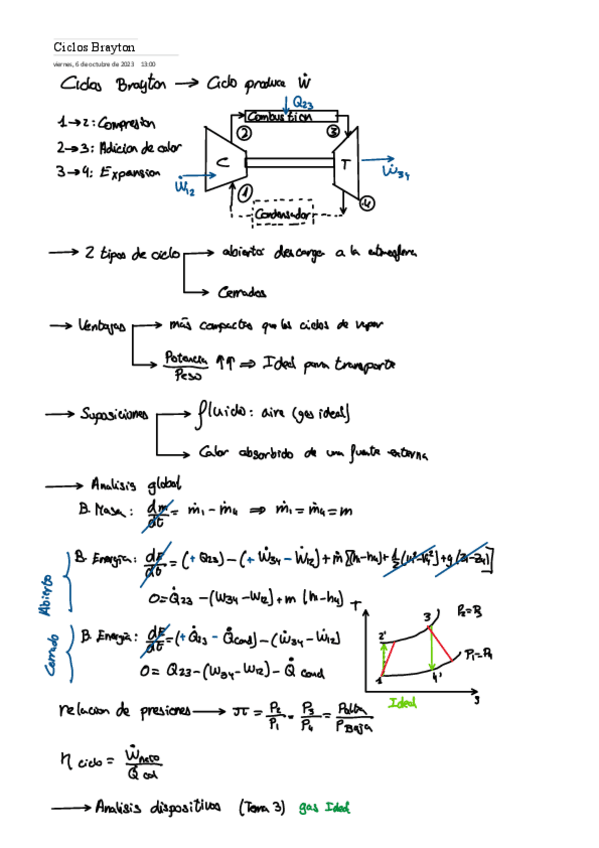 Ciclos Brayton
viernes, 6 de octubre de 2023 13:00
Ciclos Brayton → Ciclo produce Ẇ
1→2: Compresion
2→3: Adicion de calor
3→4: Expansion
Q23
Combustion
② ③
C T
Ẇ12 Ẇ34
① ④
Condensador
→ 2 tipos de ciclo → abierto: descarga a la atmosfera
→ Cerrados
→ Ventajas → más compactos que los ciclos de vapor
→ Potencia/Peso ↑↑ ⇒ Ideal para transporte
→ Suposiciones → fluido: aire (gas ideal)
→ Calor absorbido de una fuente externa
→ Analisis global
B. Masa: dm/dt = ṁ1 - ṁ4 ⇒ ṁ1 = ṁ4 = m
Abierto
B. Energía: dE/dt = (+ Q23) - (+ Ẇ34 - Ẇ12) + ṁ [(h1-h4) + 1/2 (v1² - v4²) + g (z1-z4)]
0 = Q̇23 - (W34 - W12) + m (h1-h4)
Cerrado
B. Energía: dE/dt = (+ Q̇23 - Q̇cond) - (Ẇ34 - Ẇ12)
0 = Q23 - (W34 - W12) - Q̇ cond
T
3 P2=P3
2'
P1=P4
1 4'
Ideal S
relacion de presiones → π = P2/P1 = P3/P4 = Palta/PBaja
η ciclo = Ẇneto/Q̇ cal
→ Analisis dispositivos (Tema 3) gas Ideal